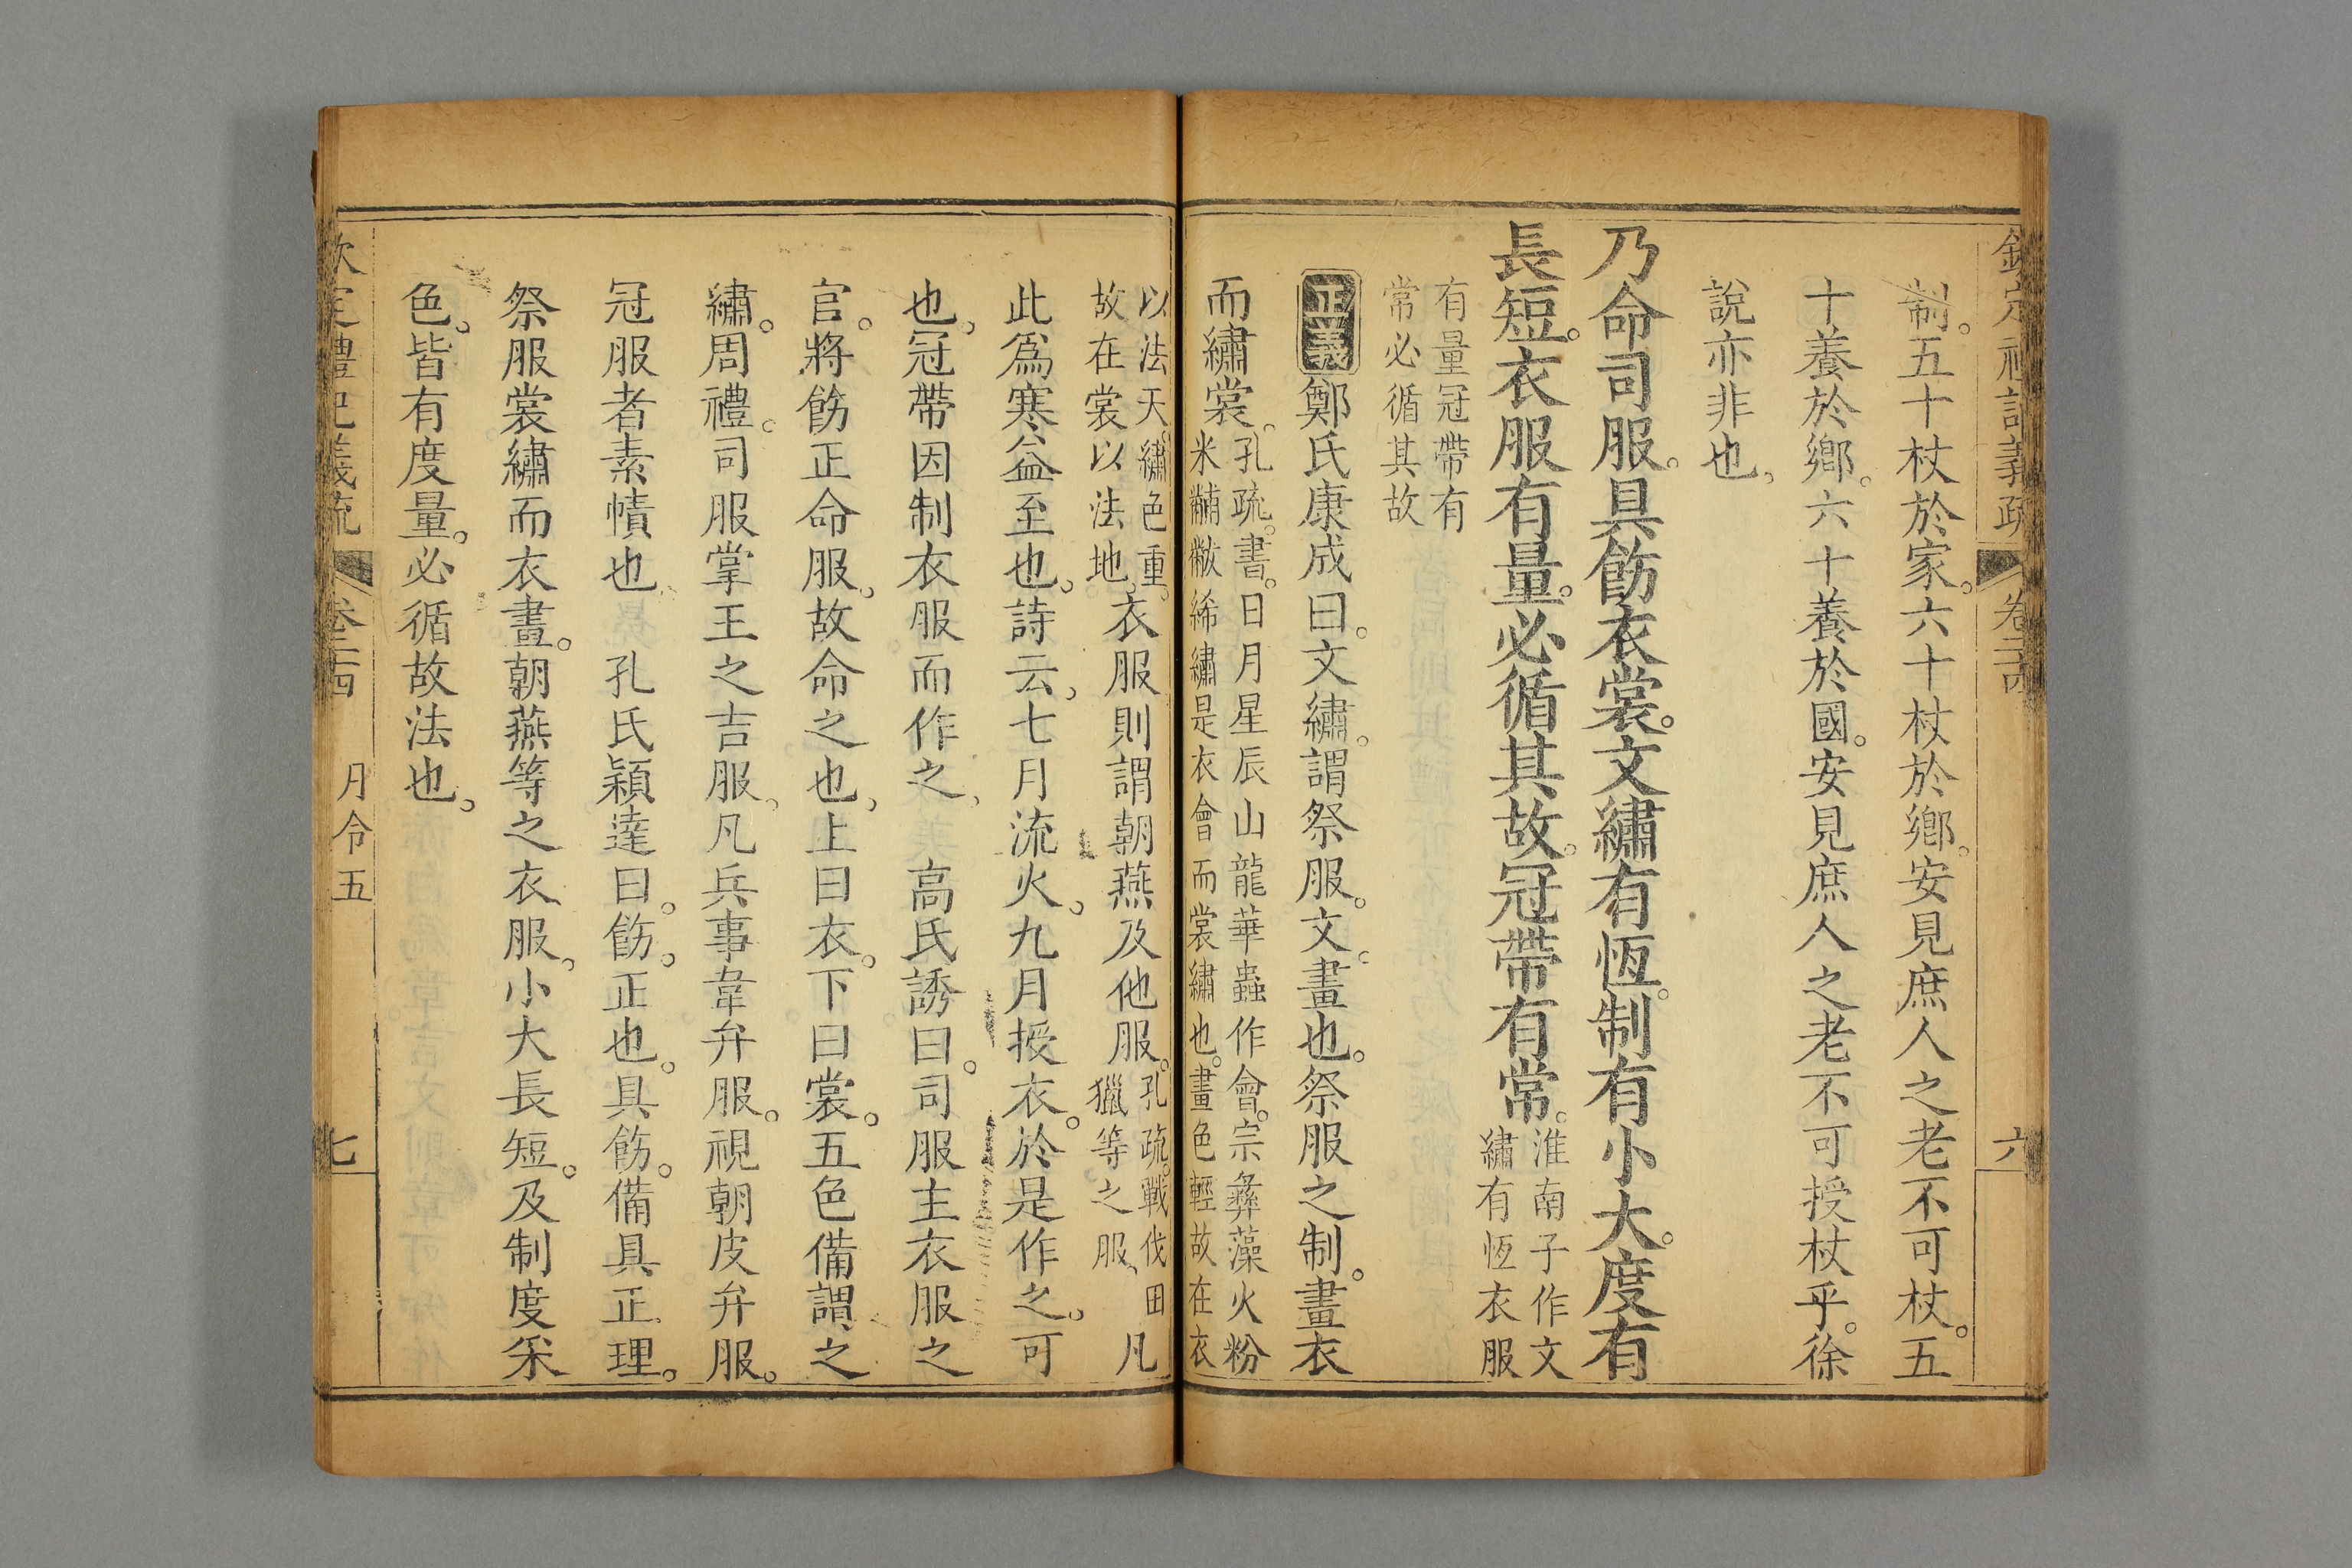 欽定禮記義疏 卷二十四 六
制。五十杖於家。六十杖於鄉。安見庶人之老不可杖。五
十養於鄉。六十養於國。安見庶人之老不可授杖乎。徐
說亦非也。
乃命司服。具飭衣裳。文繡有恆。制有小大。度有
長短。衣服有量。必循其故。冠帶有常。淮南子作文
繡有恆衣服
有量冠帶有
常必循其故
正義 鄭氏康成曰。文繡。謂祭服。文。畫也。祭服之制。畫衣
而繡裳。孔疏。書。日月星辰山龍華蟲作會。宗彝藻火粉
米黼黻絺繡是衣會而裳繡也。畫色輕故在衣
以法天、繡色重。
故在裳以法地。衣服則謂朝燕及他服。孔疏。戰伐田
獵等之服、凡
此為寒益至也。詩云。七月流火。九月授衣。於是作之。可
也。冠帶因制衣服而作之。 高氏誘曰。司服主衣服之
官。將飭正命服。故命之也。上曰衣。下曰裳。五色備謂之
繡。周禮。司服掌王之吉服。凡兵事韋弁服。視朝皮弁服。
冠服者素幘也 孔氏穎達曰。飭。正也。具飭。備具正理。
祭服裳繡而衣畫。朝燕等之衣服。小大長短。及制度采
色。皆有度量。必循故法也。
欽定禮記義疏 卷二十四 月令五 七